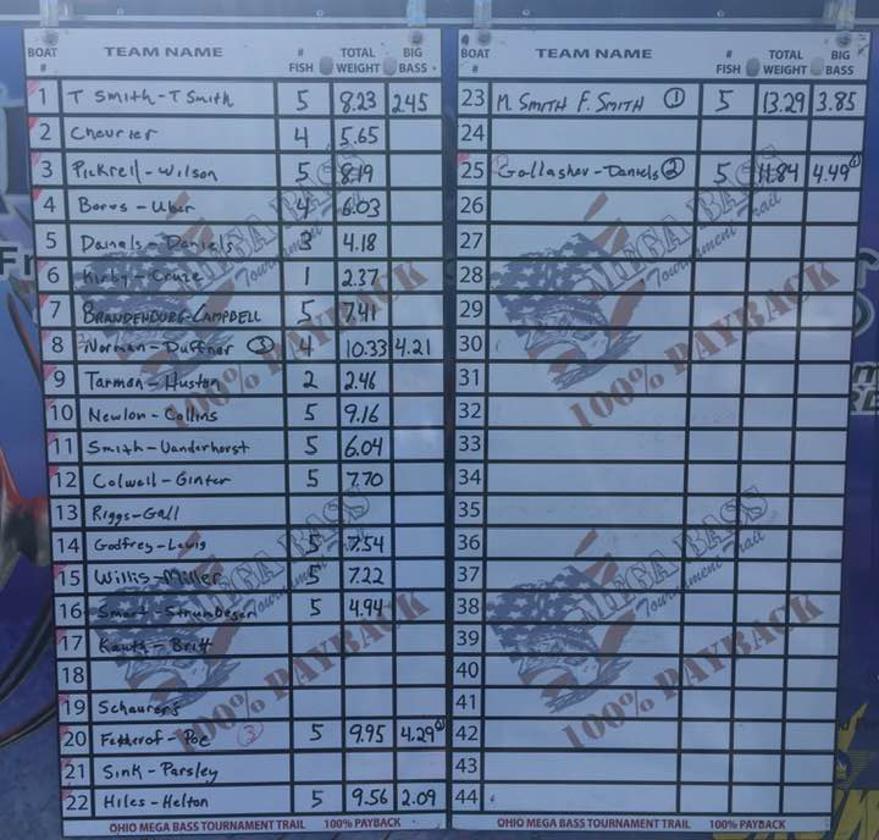 BOAT # TEAM NAME # FISH TOTAL WEIGHT BIG BASS
1 T Smith-T Smith 5 8.23 2.45
2 Cheurier 4 5.65
3 Pickrell-Wilson 5 8.19
4 Borus-Uber 4 6.03
5 Dainals-Daniels 3 4.18
6 Kirby-Cruze 1 2.37
7 BRANDENBURG-CAMPBELL 5 7.41
8 Norman-Duffner ③ 4 10.33 4.21
9 Tarman-Huston 2 2.46
10 Newlon-Collins 5 9.16
11 Smith-Vanderhorst 5 6.04
12 Colwell-Ginter 5 7.70
13 Riggs-Gall
14 Godfrey-Lewis 5 7.54
15 Willis-Miller 5 7.22
16 5 4.94
17 Kauth-Britt
18
19 Schaurers
20 Fetherof-Poe ③ 5 9.95 4.29
21 Sink-Parsley
22 Hiles-Helton 5 9.56 2.09
OHIO MEGA BASS TOURNAMENT TRAIL 100% PAYBACK
BOAT # TEAM NAME # FISH TOTAL WEIGHT BIG BASS
23 M. SMITH F. SMITH ① 5 13.29 3.85
24
25 Gallasher-Daniels ② 5 11.84 4.49
26
27
28
29
30
31
32
33
34
35
36
37
38
39
40
41
42
43
44
OHIO MEGA BASS TOURNAMENT TRAIL 100% PAYBACK
MEGA BASS
Tournament Trail
100% PAYBACK
MEGA BASS
Tournament Trail
100% PAYBACK
MEGA BASS
Tournament Trail
100% PAYBACK
MEGA BASS
Tournament Trail
100% PAYBACK